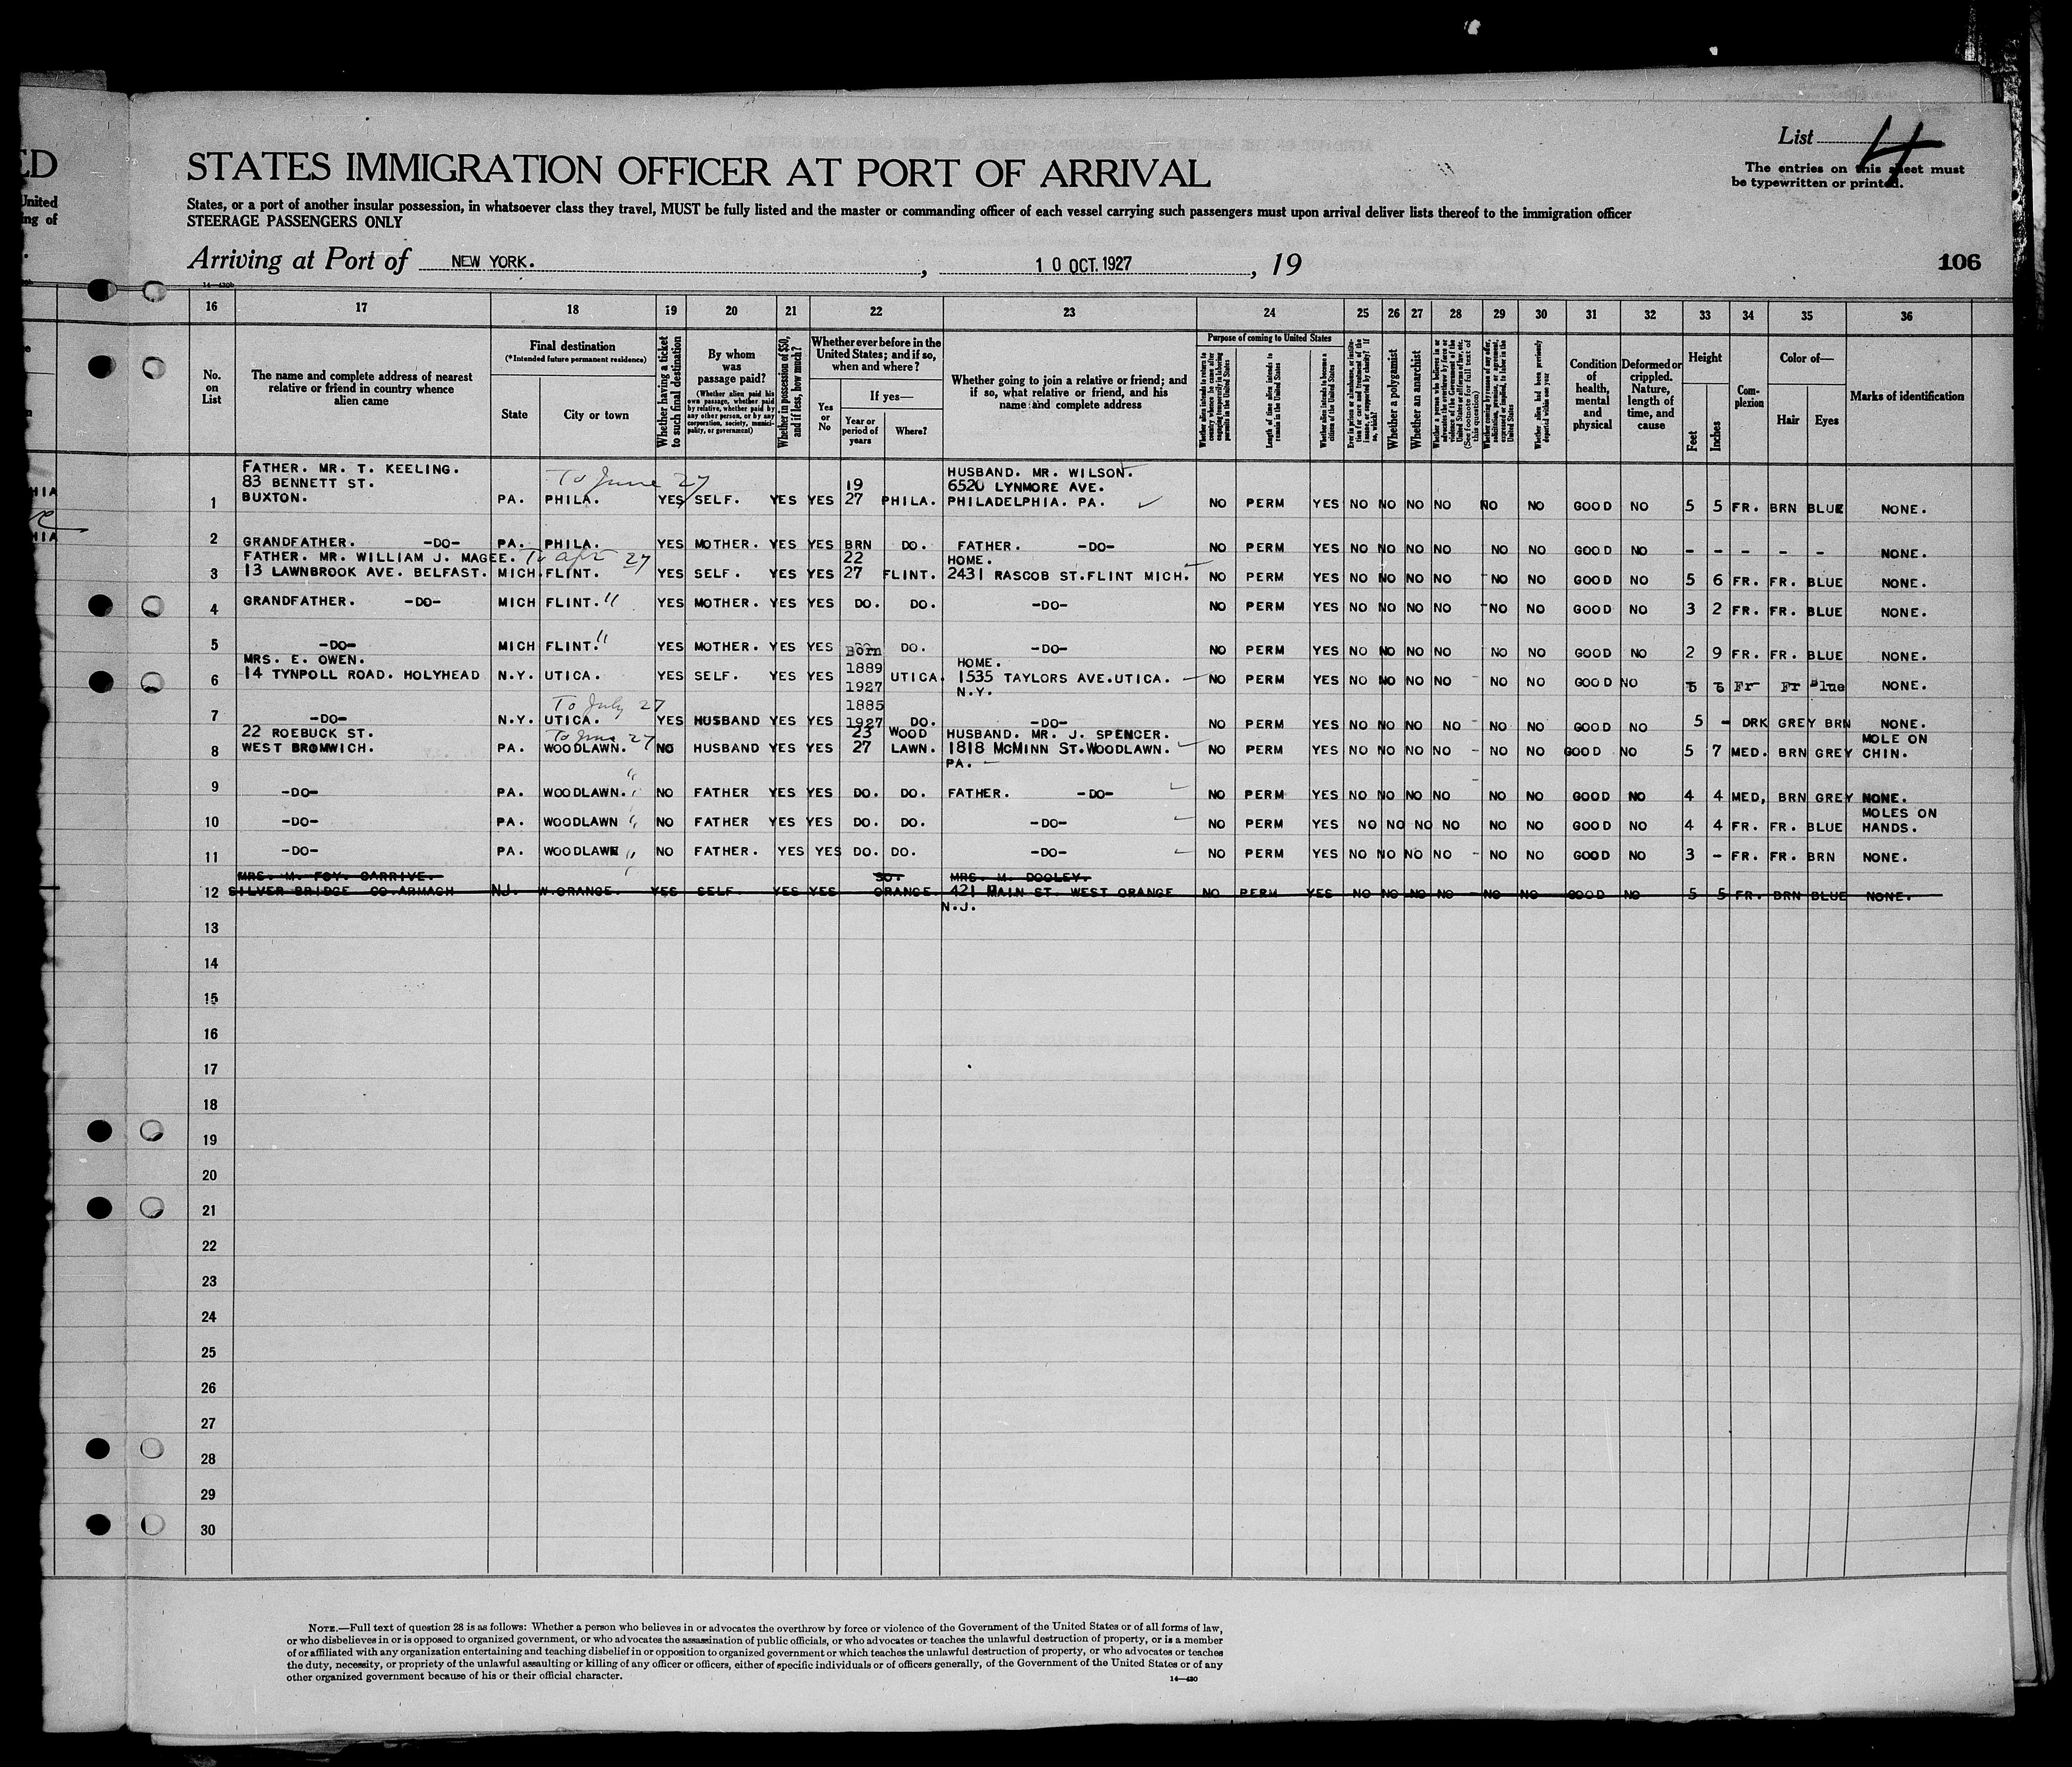 ED
United
ing of
List 4
The entries on this sheet must
be typewritten or printed.
STATES IMMIGRATION OFFICER AT PORT OF ARRIVAL
States, or a port of another insular possession, in whatsoever class they travel, MUST be fully listed and the master or commanding officer of each vessel carrying such passengers must upon arrival deliver lists thereof to the immigration officer
STEERAGE PASSENGERS ONLY
Arriving at Port of NEW YORK. , 10 OCT. 1927 , 19
106
16 17 18 19 20 21 22 23 24 25 26 27 28 29 30 31 32 33 34 35 36
No. on List
The name and complete address of nearest relative or friend in country whence alien came
Final destination
(*Intended future permanent residence)
State
City or town
Whether having a ticket to such final destination
By whom was passage paid?
(Whether alien paid his own passage, whether paid by relative, whether paid by any other person, or by any corporation, society, municipality, or government)
Whether in possession of $50, and if less, how much?
Whether ever before in the United States; and if so, when and where?
Yes or No
If yes—
Year or period of years
Where?
Whether going to join a relative or friend; and if so, what relative or friend, and his name and complete address
Purpose of coming to United States
Length of time alien intends to remain in the United States
Whether alien intends to become a citizen of the United States
Whether a polygamist
Whether an anarchist
(See footnote for full text of this question)
Whether alien had been previously deported within one year
Condition of health, mental and physical
Deformed or crippled. Nature, length of time, and cause
Height
Feet
Inches
Complexion
Color of—
Hair
Eyes
Marks of identification
FATHER. MR. T. KEELING. To June 27 HUSBAND. MR. WILSON.
83 BENNETT ST. 19 6520 LYNMORE AVE.
1 BUXTON. PA. PHILA. YES SELF. YES YES 27 PHILA. PHILADELPHIA. PA. NO PERM YES NO NO NO NO NO NO GOOD NO 5 5 FR. BRN BLUE NONE.
2 GRANDFATHER. -DO- PA. PHILA. YES MOTHER. YES YES BRN DO. FATHER. -DO- NO PERM YES NO NO NO NO NO NO GOOD NO - - - - - NONE.
FATHER. MR. WILLIAM J. MAGEE. To apr 27 22 HOME.
3 13 LAWNBROOK AVE. BELFAST. MICH. FLINT. YES SELF. YES YES 27 FLINT. 2431 RASCOB ST. FLINT MICH. NO PERM YES NO NO NO NO NO NO GOOD NO 5 6 FR. FR. BLUE NONE.
4 GRANDFATHER. -DO- MICH FLINT. " YES MOTHER. YES YES DO. DO. -DO- NO PERM YES NO NO NO NO NO NO GOOD NO 3 2 FR. FR. BLUE NONE.
5 -DO- MICH FLINT. " YES MOTHER. YES YES Born DO. -DO- NO PERM YES NO NO NO NO NO NO GOOD NO 2 9 FR. FR. BLUE NONE.
MRS. E. OWEN. 1889 HOME.
6 14 TYNPOLL ROAD. HOLYHEAD N.Y. UTICA. YES SELF. YES YES 1927 UTICA. 1535 TAYLORS AVE. UTICA. N.Y. NO PERM YES NO NO NO NO NO NO GOOD NO 5 6 Fr Fr Blue NONE.
To July 27 1885
7 -DO- N.Y. UTICA. YES HUSBAND YES YES 1927 DO. -DO- NO PERM YES NO NO NO NO NO NO GOOD NO 5 - DRK GREY BRN NONE.
22 ROEBUCK ST. To June 27 23 WOOD HUSBAND. MR. J. SPENCER. MOLE ON
8 WEST BROMWICH. PA. WOODLAWN. NO HUSBAND YES YES 27 LAWN. 1818 MCMINN ST. WOODLAWN. PA. NO PERM YES NO NO NO NO NO NO GOOD NO 5 7 MED. BRN GREY CHIN.
9 -DO- PA. WOODLAWN. " NO FATHER YES YES DO. DO. FATHER. -DO- NO PERM YES NO NO NO NO NO NO GOOD NO 4 4 MED, BRN GREY NONE.
MOLES ON
10 -DO- PA. WOODLAWN " NO FATHER YES YES DO. DO. -DO- NO PERM YES NO NO NO NO NO NO GOOD NO 4 4 FR. FR. BLUE HANDS.
11 -DO- PA. WOODLAWN " NO FATHER. YES YES DO. DO. -DO- NO PERM YES NO NO NO NO NO NO GOOD NO 3 - FR. FR. BRN NONE.
MRS. M. FOY. CARRIVE. SO. MRS. M. DOOLEY.
12 SILVER BRIDGE CO. ARMAGH NJ. W.ORANGE. YES SELF. YES YES ORANGE. 421 MAIN ST. WEST ORANGE NO PERM YES NO NO NO NO NO NO GOOD NO 5 5 FR. BRN BLUE NONE.
N.J.
13
14
15
16
17
18
19
20
21
22
23
24
25
26
27
28
29
30
NOTE.—Full text of question 28 is as follows: Whether a person who believes in or advocates the overthrow by force or violence of the Government of the United States or of all forms of law,
or who disbelieves in or is opposed to organized government, or who advocates the assassination of public officials, or who advocates or teaches the unlawful destruction of property, or is a member
of or affiliated with any organization entertaining and teaching disbelief in or opposition to organized government or which teaches the unlawful destruction of property, or who advocates or teaches
the duty, necessity, or propriety of the unlawful assaulting or killing of any officer or officers, either of specific individuals or of officers generally, of the Government of the United States or of any
other organized government because of his or their official character.
14—420